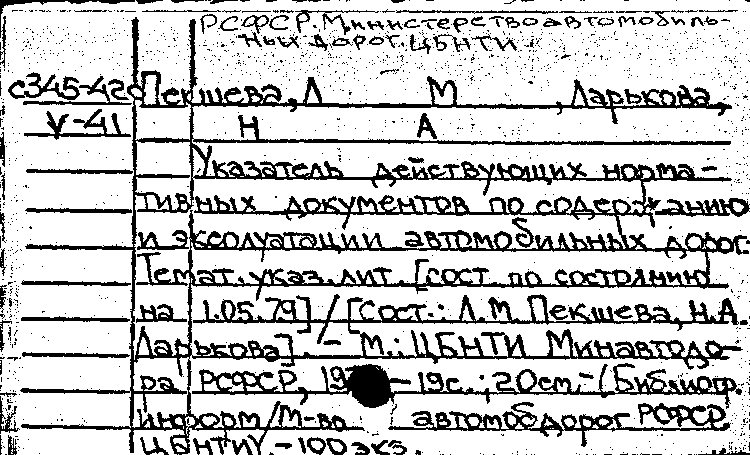 РСФСР. Министерство автомобиль-
ных дорог. ЦБНТИ.
с345-42с Пекшева, Л М , Ларькова,
V-41 Н А
Указатель действующих норма-
тивных документов по содержанию
и эксплуатации автомобильных дорог:
Темат. указ. лит. [сост. по состоянию
на 1.05.79] / [Сост.: Л.М. Пекшева, Н.А.
Ларькова]. - М.: ЦБНТИ Минавтодо-
ра РСФСР, - 19с.; 20см. - (Библиогр.
информ/М-во автомоб дорог РСФСР.
ЦБНТИ). - 100 экз.